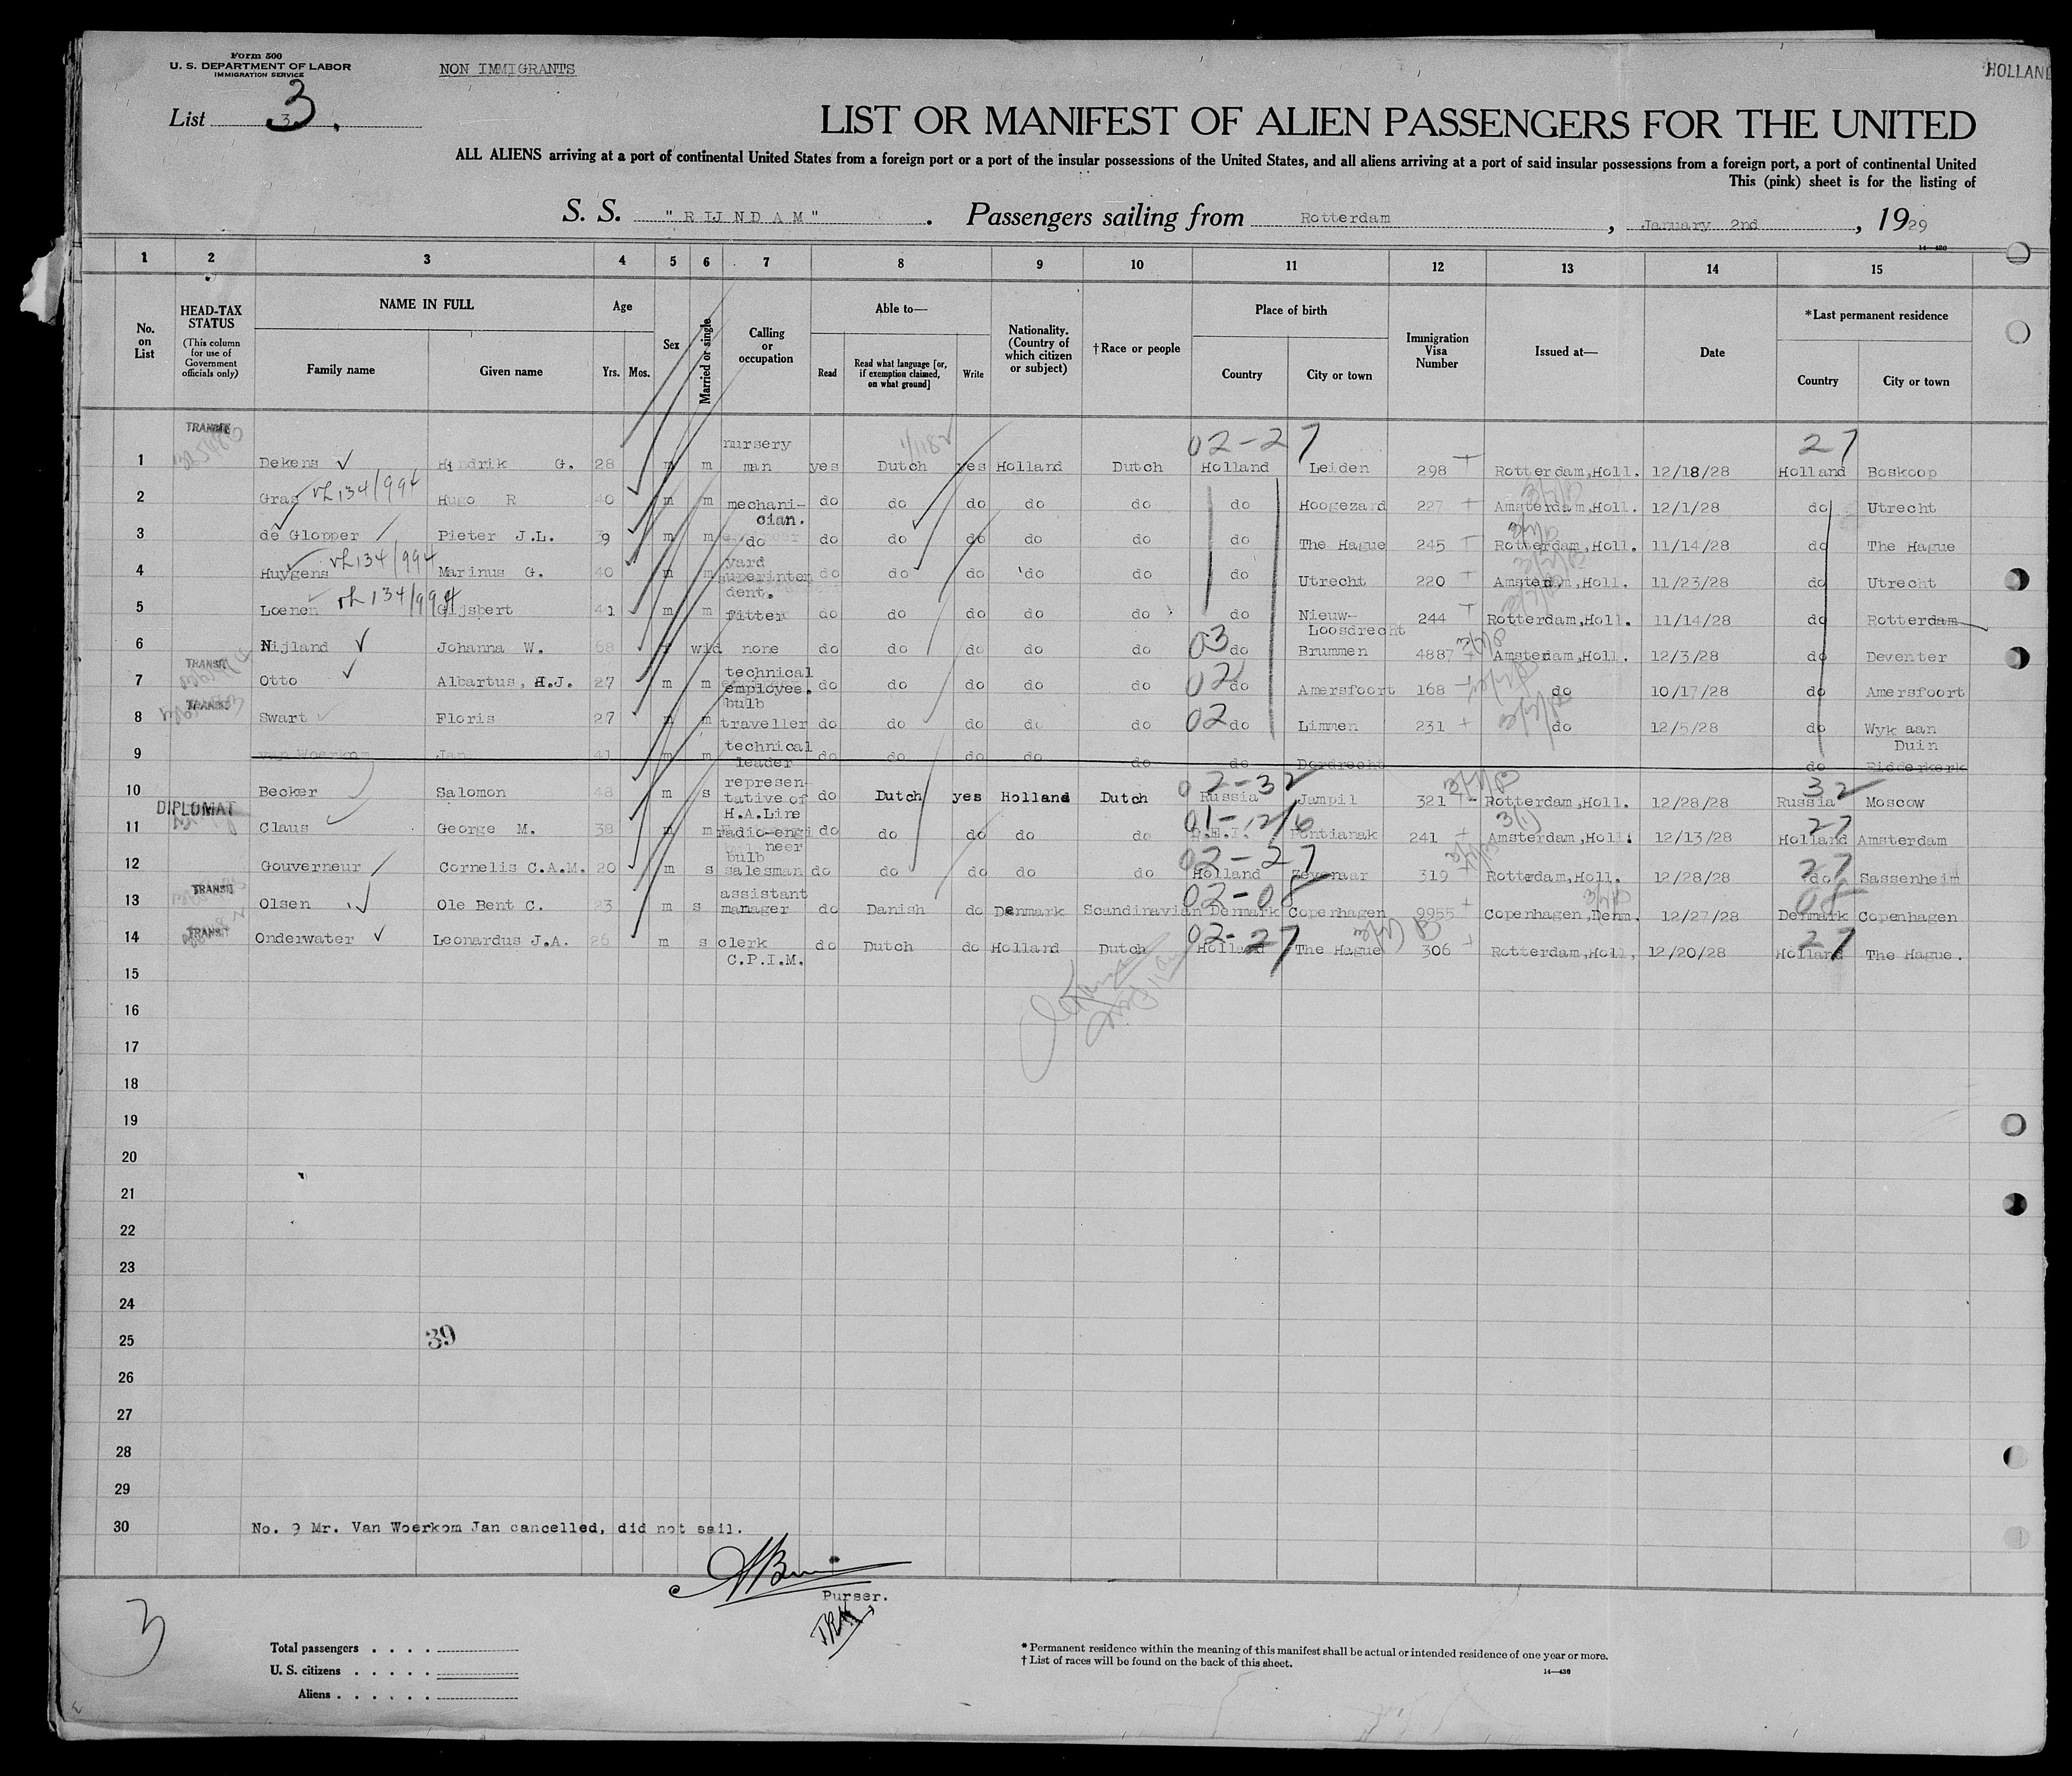 Form 500
U. S. DEPARTMENT OF LABOR
IMMIGRATION SERVICE
NON IMMIGRANTS
HOLLAND
List 3
3.
LIST OR MANIFEST OF ALIEN PASSENGERS FOR THE UNITED
ALL ALIENS arriving at a port of continental United States from a foreign port or a port of the insular possessions of the United States, and all aliens arriving at a port of said insular possessions from a foreign port, a port of continental United
This (pink) sheet is for the listing of
S. S. "RIJNDAM". Passengers sailing from Rotterdam, January 2nd, 1929
14—430
1 2 3 4 5 6 7 8 9 10 11 12 13 14 15
No. on List
HEAD-TAX STATUS
(This column for use of Government officials only)
NAME IN FULL
Family name
Given name
Age
Yrs.
Mos.
Sex
Married or single
Calling or occupation
Able to—
Read
Read what language [or, if exemption claimed, on what ground]
Write
Nationality. (Country of which citizen or subject)
†Race or people
Place of birth
Country
City or town
Immigration Visa Number
Issued at—
Date
*Last permanent residence
Country
City or town
TRANSIT
02-27 27
1 Dekens Hendrik G. 28 m m nursery man yes Dutch yes Holland Dutch Holland Leiden 298 Rotterdam,Holl. 12/18/28 Holland Boskoop
2 Gras 134/994 Hugo R 40 m m mechani-cian. do do do do do do Hoogezand 227 Amsterdam,Holl. 12/1/28 do Utrecht
3 de Glopper Pieter J.L. 39 m m do do do do do do do The Hague 245 Rotterdam,Holl. 11/14/28 do The Hague
4 Huygens 134/994 Marinus G. 40 m m yard superinten dent. do do do do do do Utrecht 220 Amsterdam,Holl. 11/23/28 do Utrecht
5 Loenen 134/994 Gijsbert 41 m m fitter do do do do do do Nieuw-Loosdrecht 244 Rotterdam,Holl. 11/14/28 do Rotterdam
03
6 Nijland Johanna W. 68 wid none do do do do do do Brummen 4887 Amsterdam,Holl. 12/3/28 do Deventer
TRANSIT
02
7 Otto Albartus, H.J. 27 m m technical employee. do do do do do do Amersfoort 168 do 10/17/28 do Amersfoort
TRANSIT
02
8 Swart Floris 27 m m bulb traveller do do do do do do Limmen 231 do 12/5/28 do Wyk aan Duin
9 van Woerkom Jan 41 m m technical leader do do do do do do Dordrecht do Ridderkerk
02-32 32
10 Becker Salomon 48 m s represen-tative of H.A.Line do Dutch yes Holland Dutch Russia Jampil 321 Rotterdam,Holl. 12/28/28 Russia Moscow
DIPLOMAT
01-12/6 27
11 Claus George M. 38 m m radio-engi neer do do do do do D.E.I. Pontianak 241 Amsterdam,Holl. 12/13/28 Holland Amsterdam
02-27 27
12 Gouverneur Cornelis C.A.M. 20 m s bulb salesman do do do do do Holland Zevenaar 319 Rotterdam,Holl. 12/28/28 do Sassenheim
TRANSIT
02-08 08
13 Olsen Ole Bent C. 23 m s assistant manager do Danish do Denmark Scandinavian Denmark Copenhagen 9955 Copenhagen,Denm. 12/27/28 Denmark Copenhagen
TRANSIT
02-27 27
14 Onderwater Leonardus J.A. 26 m s clerk C.P.I.M. do Dutch do Holland Dutch Holland The Hague 306 Rotterdam,Holl, 12/20/28 Holland The Hague.
15
16
17
18
19
20
21
22
23
24
25 39
26
27
28
29
30 No. 9 Mr. Van Woerkom Jan cancelled, did not sail.
Purser.
3
Total passengers . . . .
U. S. citizens . . . . .
Aliens . . . . . .
* Permanent residence within the meaning of this manifest shall be actual or intended residence of one year or more.
† List of races will be found on the back of this sheet.
14—430